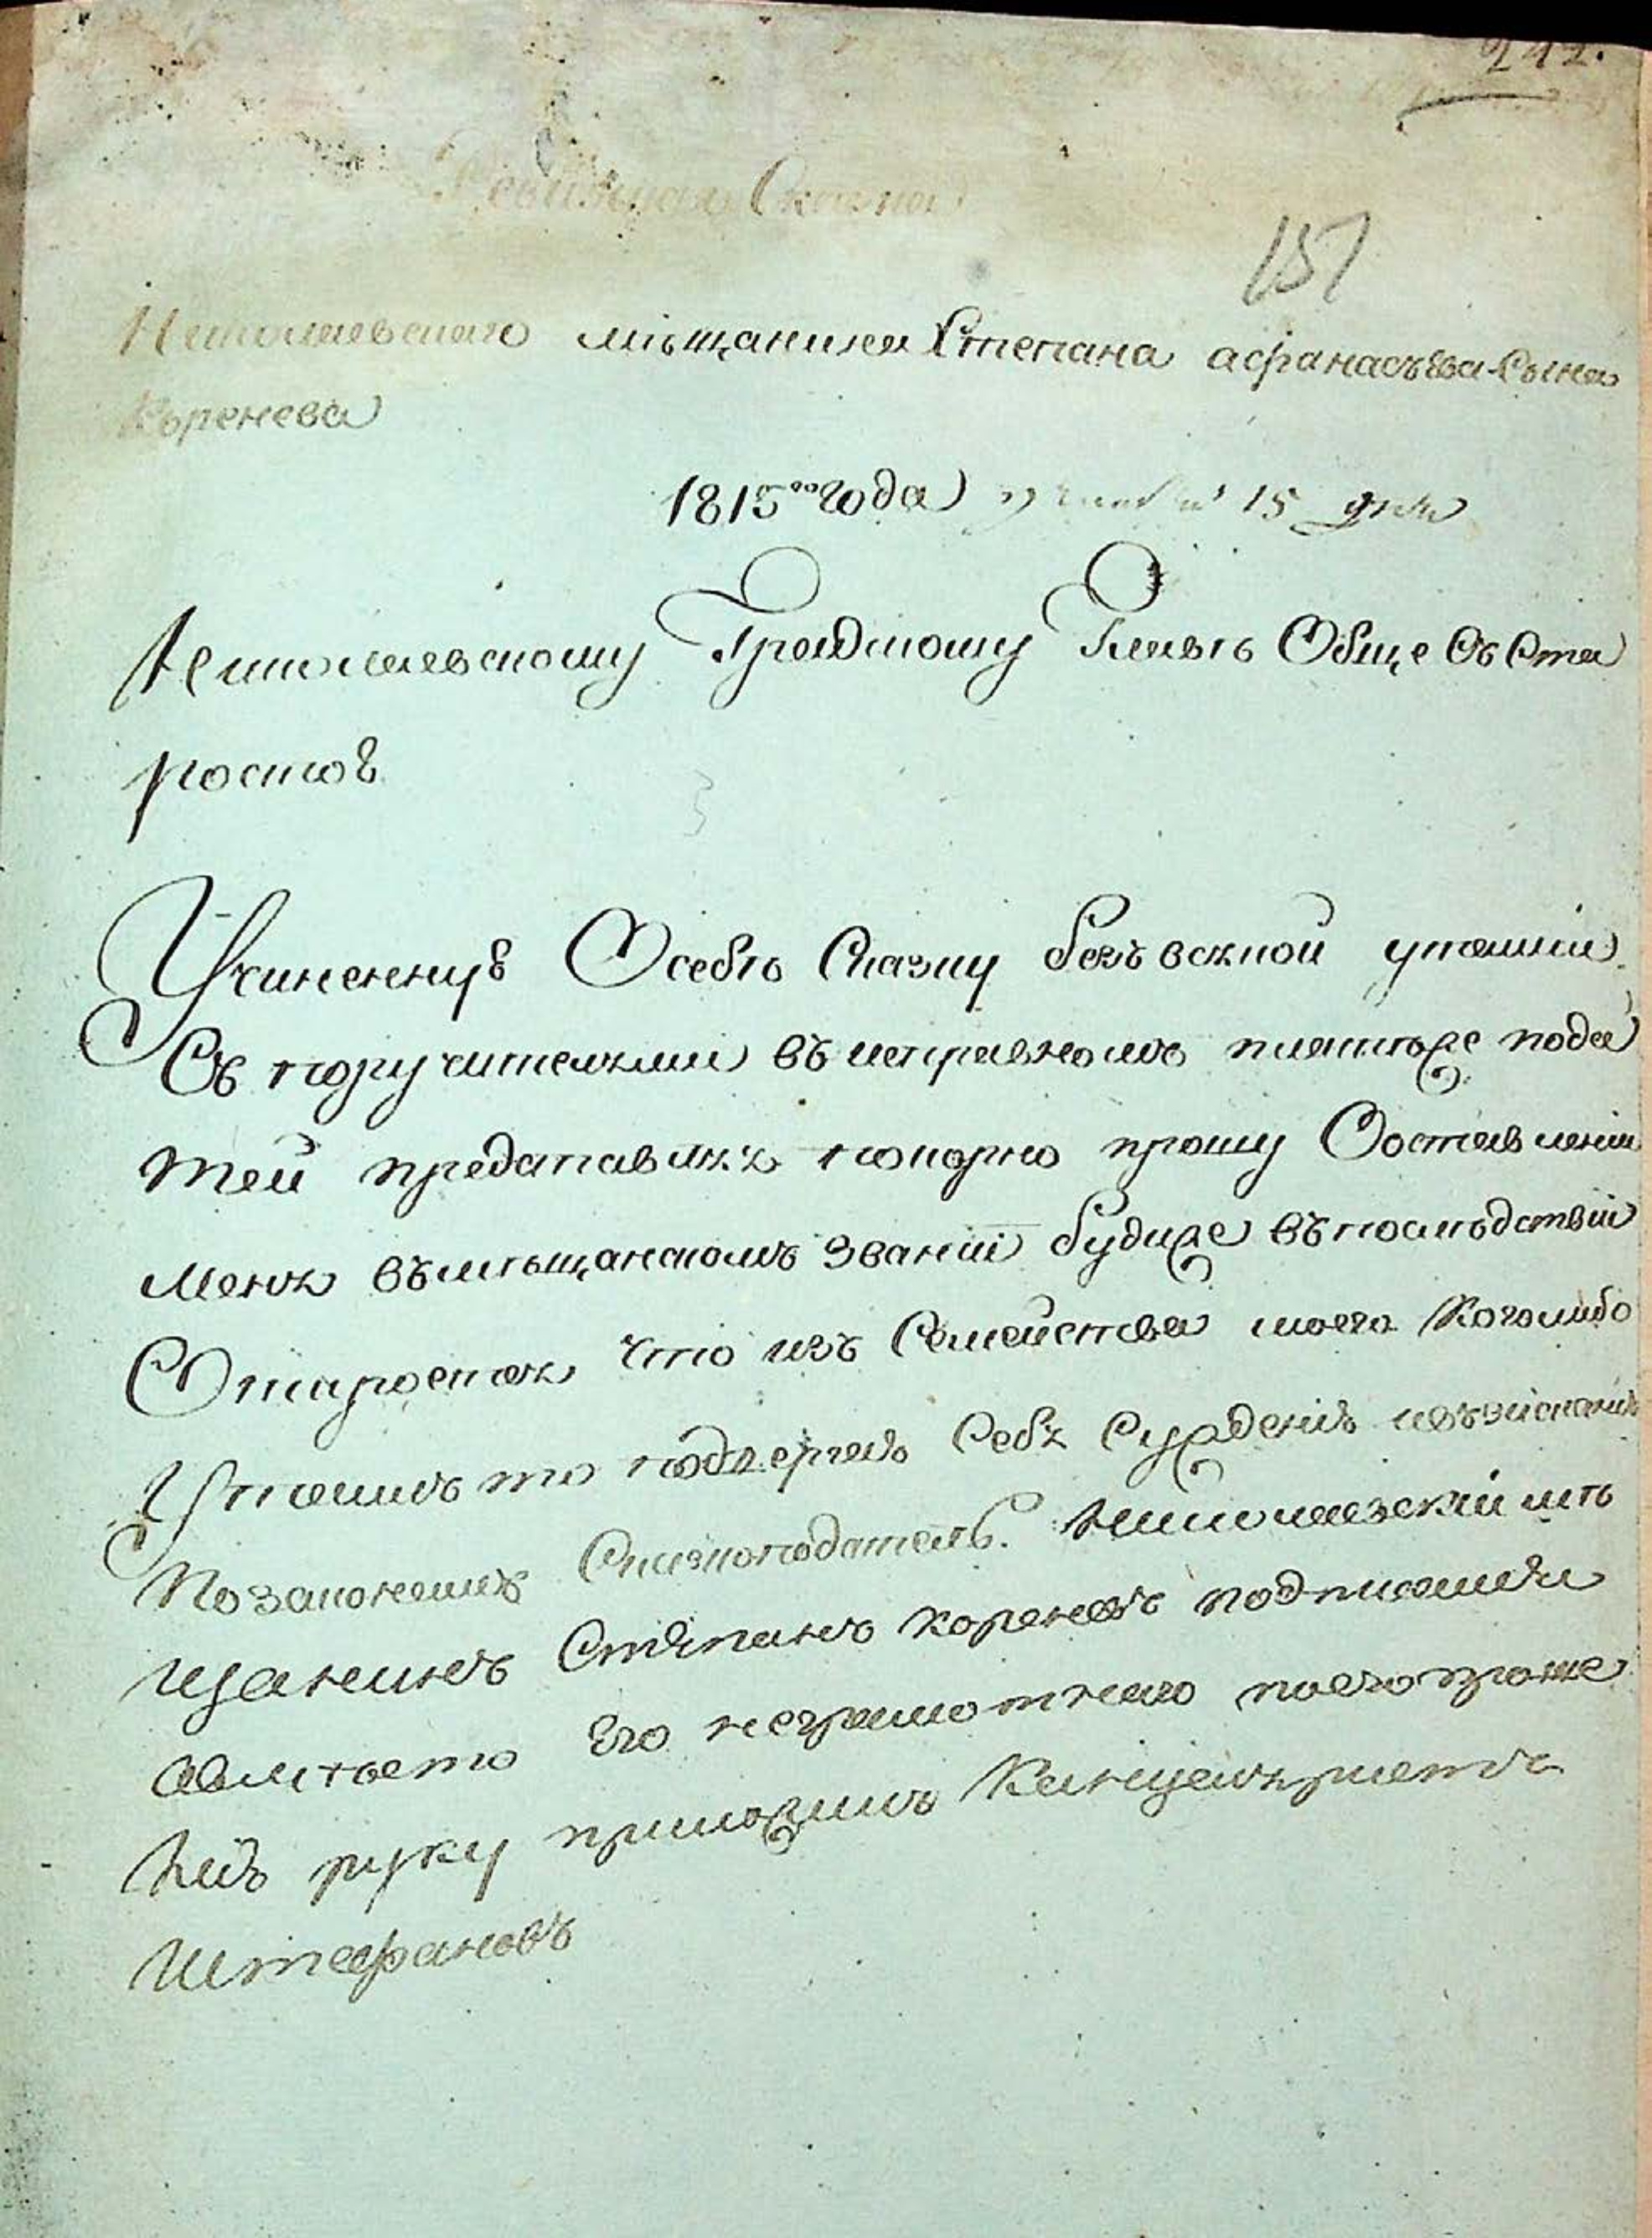 242.
Ревижская Сказка
151
Николаевскаго мѣщанина Степана афанасьева Сына
Коренева
1815го года 15 дня
Николаевскому Градскому Главѣ Обще Съ Ста
ростою
Учиненную Осебѣ Сказку безъ всякой утайки
Съ поручителями въ исправномъ платѣже пода
тей представляя покорно прошу Оставлении
Меня въ мѣщанскомъ Звании будиже въ последствии
Откроется что изъ Семейства моего Коголибо
Утаилъ то подвергаю Себя Суждению и взысканию
По законамъ Сказкоподатель. Николаевский мѣ
щанинъ Степанъ кореневъ подписалъ
а вместо Его неграмотнаго по его проше
нию руку приложилъ Канцеляристъ
Штефановъ